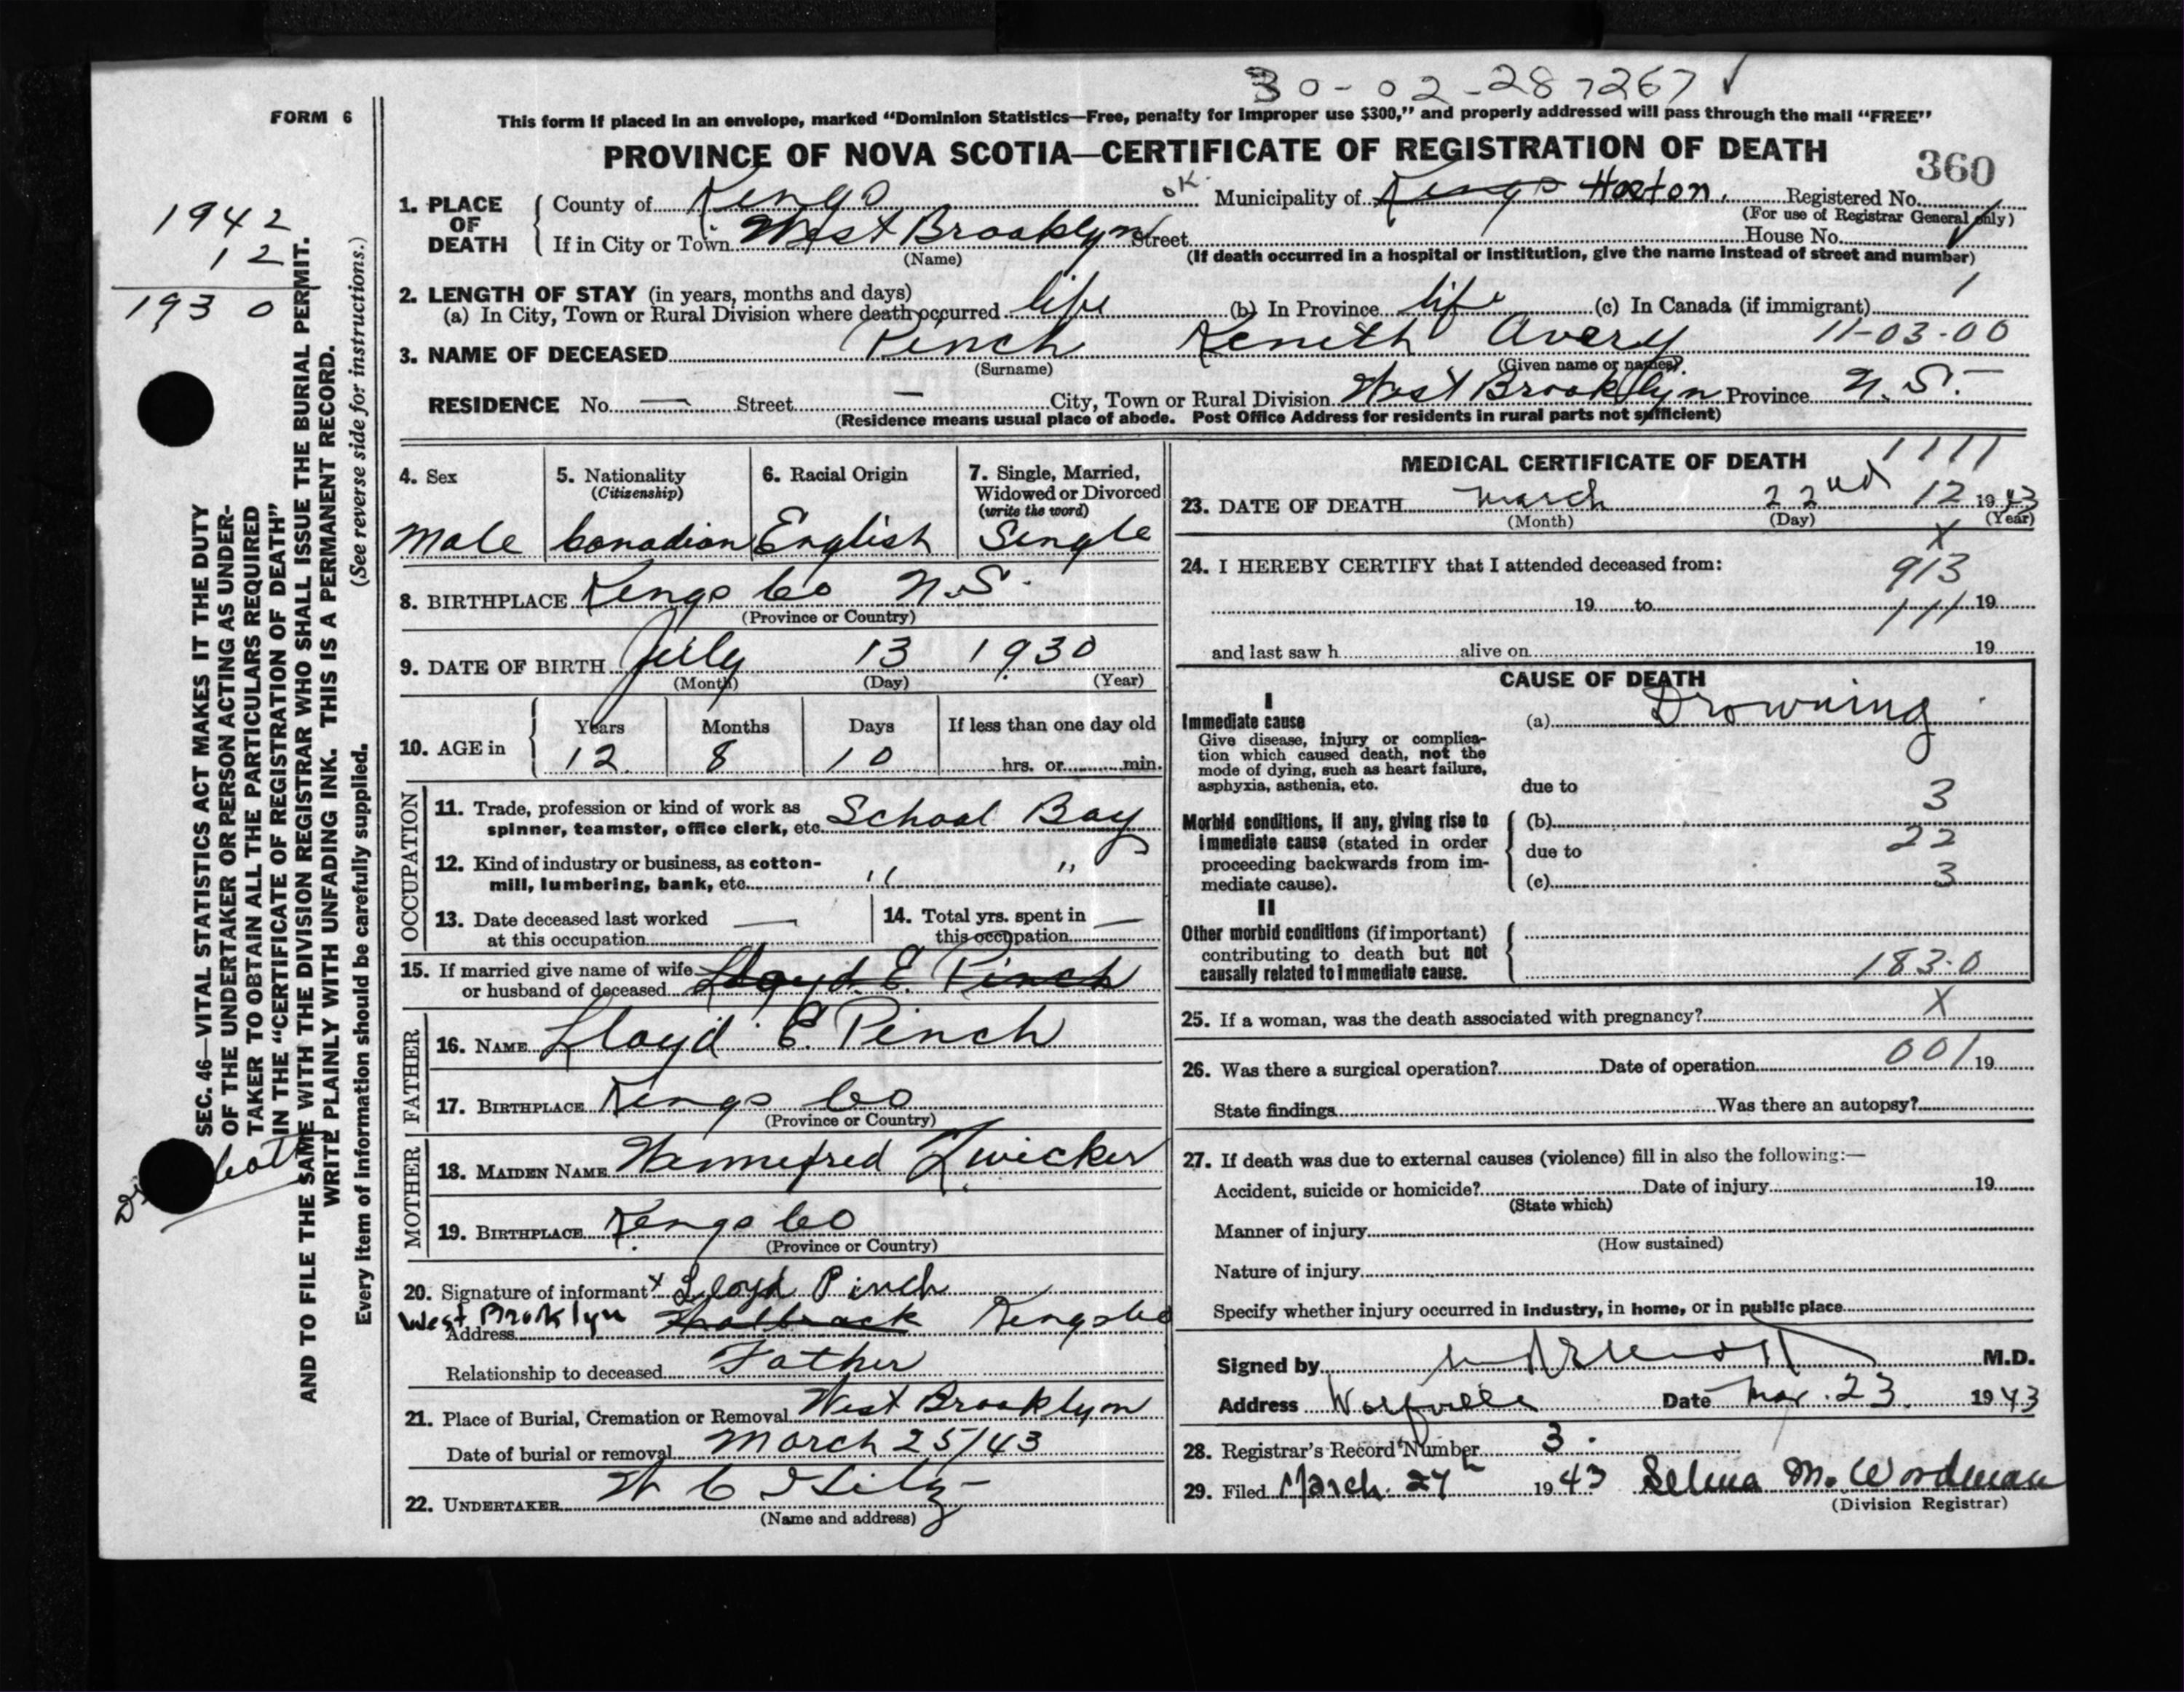 30-02-287267 ✓
FORM 6
This form if placed in an envelope, marked “Dominion Statistics—Free, penalty for improper use $300,” and properly addressed will pass through the mail “FREE”
PROVINCE OF NOVA SCOTIA—CERTIFICATE OF REGISTRATION OF DEATH
360
1. PLACE OF DEATH
County of Kings OK. Municipality of Kings Horton. Registered No.
(For use of Registrar General only)
If in City or Town West Brooklyn Street House No.
(Name) (If death occurred in a hospital or institution, give the name instead of street and number)
2. LENGTH OF STAY (in years, months and days) 1
(a) In City, Town or Rural Division where death occurred life (b) In Province life (c) In Canada (if immigrant)
3. NAME OF DECEASED Pinch Kenith Avery 11-03-00
(Surname) (Given name or names)
RESIDENCE No. — Street — City, Town or Rural Division West Brooklyn Province N.S.
(Residence means usual place of abode. Post Office Address for residents in rural parts not sufficient)
4. Sex
Male
5. Nationality
(Citizenship)
Canadian
6. Racial Origin
English
7. Single, Married,
Widowed or Divorced
(write the word)
Single
8. BIRTHPLACE Kings Co N.S.
(Province or Country)
9. DATE OF BIRTH July 13 1930
(Month) (Day) (Year)
10. AGE in
Years Months Days If less than one day old
12 8 10 hrs. or min.
OCCUPATION
11. Trade, profession or kind of work as
spinner, teamster, office clerk, etc. School Boy
12. Kind of industry or business, as cotton-
mill, lumbering, bank, etc. " "
13. Date deceased last worked —
at this occupation
14. Total yrs. spent in —
this occupation
15. If married give name of wife
or husband of deceased Lloyd E. Pinch
FATHER
16. NAME Lloyd E. Pinch
17. BIRTHPLACE Kings Co
(Province or Country)
MOTHER
18. MAIDEN NAME Winnefred Zwicker
19. BIRTHPLACE Kings Co
(Province or Country)
20. Signature of informant x Lloyd Pinch
West Brooklyn
Address Kings Co
Relationship to deceased Father
21. Place of Burial, Cremation or Removal West Brooklyn
Date of burial or removal March 25/43
22. UNDERTAKER W C Hiltz
(Name and address)
MEDICAL CERTIFICATE OF DEATH
1111
23. DATE OF DEATH March 22nd 12 1943
(Month) (Day) (Year)
X
24. I HEREBY CERTIFY that I attended deceased from:
913
19 to 111 19
and last saw h alive on 19
CAUSE OF DEATH
I
Immediate cause
Give disease, injury or complica-
tion which caused death, not the
mode of dying, such as heart failure,
asphyxia, asthenia, etc.
(a) Drowning
due to
3
Morbid conditions, if any, giving rise to
immediate cause (stated in order
proceeding backwards from im-
mediate cause).
(b)
due to 22
(c) 3
II
Other morbid conditions (if important)
contributing to death but not
causally related to immediate cause.
183.0
25. If a woman, was the death associated with pregnancy? X
26. Was there a surgical operation? Date of operation 001 19
State findings Was there an autopsy?
27. If death was due to external causes (violence) fill in also the following:—
Accident, suicide or homicide? Date of injury 19
(State which)
Manner of injury
(How sustained)
Nature of injury
Specify whether injury occurred in industry, in home, or in public place
Signed by M.D.
Address Wolfville Date Mar. 23. 1943
28. Registrar's Record Number 3.
29. Filed March. 27th 1943 Selma M. Wordman
(Division Registrar)
1942
12
1930
SEC. 46—VITAL STATISTICS ACT MAKES IT THE DUTY
OF THE UNDERTAKER OR PERSON ACTING AS UNDER-
TAKER TO OBTAIN ALL THE PARTICULARS REQUIRED
IN THE “CERTIFICATE OF REGISTRATION OF DEATH”
AND TO FILE THE SAME WITH THE DIVISION REGISTRAR WHO SHALL ISSUE THE BURIAL PERMIT.
WRITE PLAINLY WITH UNFADING INK. THIS IS A PERMANENT RECORD.
Every item of information should be carefully supplied. (See reverse side for instructions.)